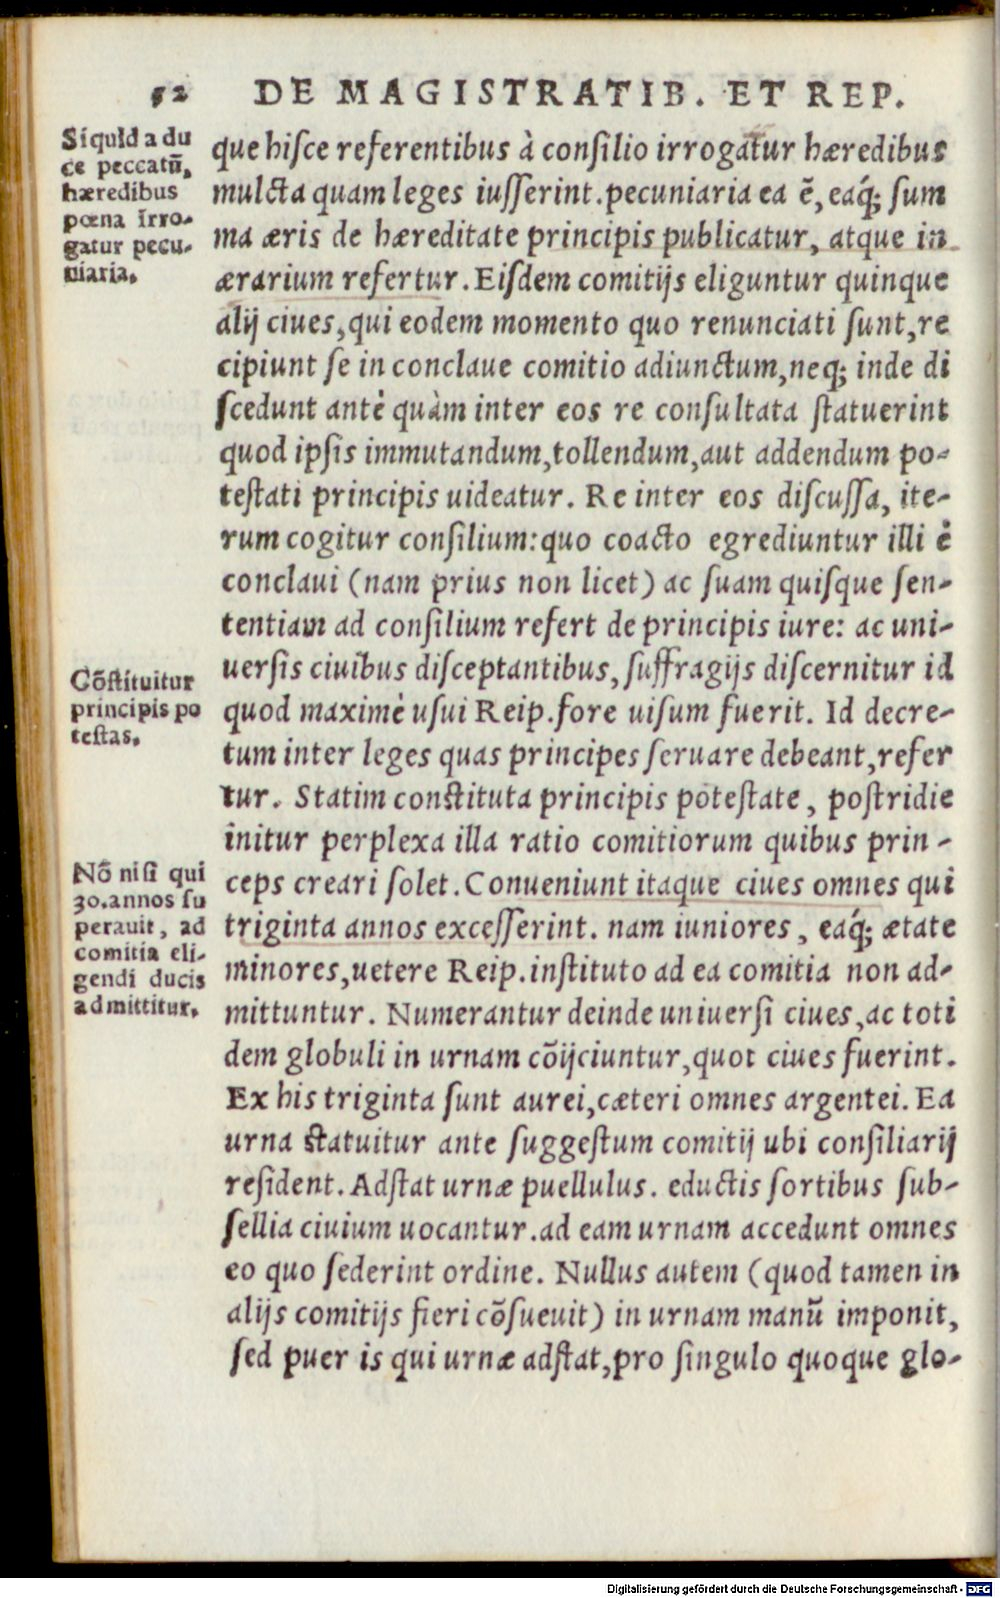 52 DE MAGISTRATIB. ET REP.
Siquid a du
ce peccatũ,
hæredibus
pœna irro-
gatur pecu-
niaria.
que hiſce referentibus à conſilio irrogatur hæredibus
mulcta quam leges iuſſerint. pecuniaria ea ẽ, eaq́; ſum
ma æris de hæreditate principis publicatur, atque in
ærarium refertur. Eiſdem comitijs eliguntur quinque
alij ciues, qui eodem momento quo renunciati ſunt, re
cipiunt ſe in conclaue comitio adiunctum, neq; inde di
ſcedunt antè quàm inter eos re conſultata ſtatuerint
quod ipſis immutandum, tollendum, aut addendum po-
teſtati principis uideatur. Re inter eos diſcuſſa, ite-
rum cogitur conſilium: quo coacto egrediuntur illi è
conclaui (nam prius non licet) ac ſuam quiſque ſen-
tentiam ad conſilium refert de principis iure: ac uni-
uerſis ciuibus diſceptantibus, ſuffragijs diſcernitur id
Cõſtituitur
principis po
teſtas.
quod maximè uſui Reip. fore uiſum fuerit. Id decre-
tum inter leges quas principes ſeruare debeant, refer
tur. Statim conſtituta principis poteſtate, poſtridie
initur perplexa illa ratio comitiorum quibus prin-
Nõ niſi qui
30. annos ſu
perauit, ad
comitia eli-
gendi ducis
admittitur.
ceps creari ſolet. Conueniunt itaque ciues omnes qui
triginta annos exceſſerint. nam iuniores, eaq́; ætate
minores, uetere Reip. inſtituto ad ea comitia non ad-
mittuntur. Numerantur deinde uniuerſi ciues, ac toti
dem globuli in urnam cõijciuntur, quot ciues fuerint.
Ex his triginta ſunt aurei, cæteri omnes argentei. Ea
urna ſtatuitur ante ſuggeſtum comitij ubi conſiliarij
reſident. Adſtat urnæ puellulus. eductis ſortibus ſub-
ſellia ciuium uocantur. ad eam urnam accedunt omnes
eo quo ſederint ordine. Nullus autem (quod tamen in
alijs comitijs fieri cõſueuit) in urnam manũ imponit,
ſed puer is qui urnæ adſtat, pro ſingulo quoque glo-
Digitalisierung gefördert durch die Deutsche Forschungsgemeinschaft - DFG